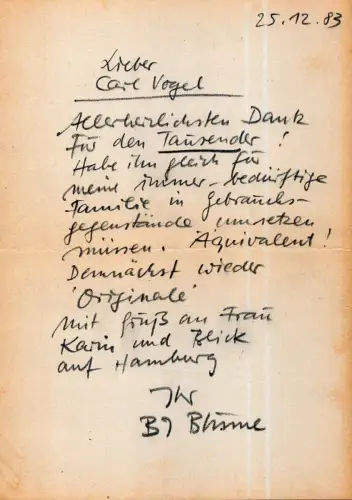 25.12.83
Lieber
Carl Vogel
Allerherzlichsten Dank
für den Tausender!
Habe ihn gleich für
meine immer-bedürftige
Familie in Gebrauchs-
gegenstände umsetzen
müssen. Äquivalent!
Demnächst wieder
'Originale'
Mit Gruß an Frau
Karin und Blick
auf Hamburg
Ihr
BJ Blume